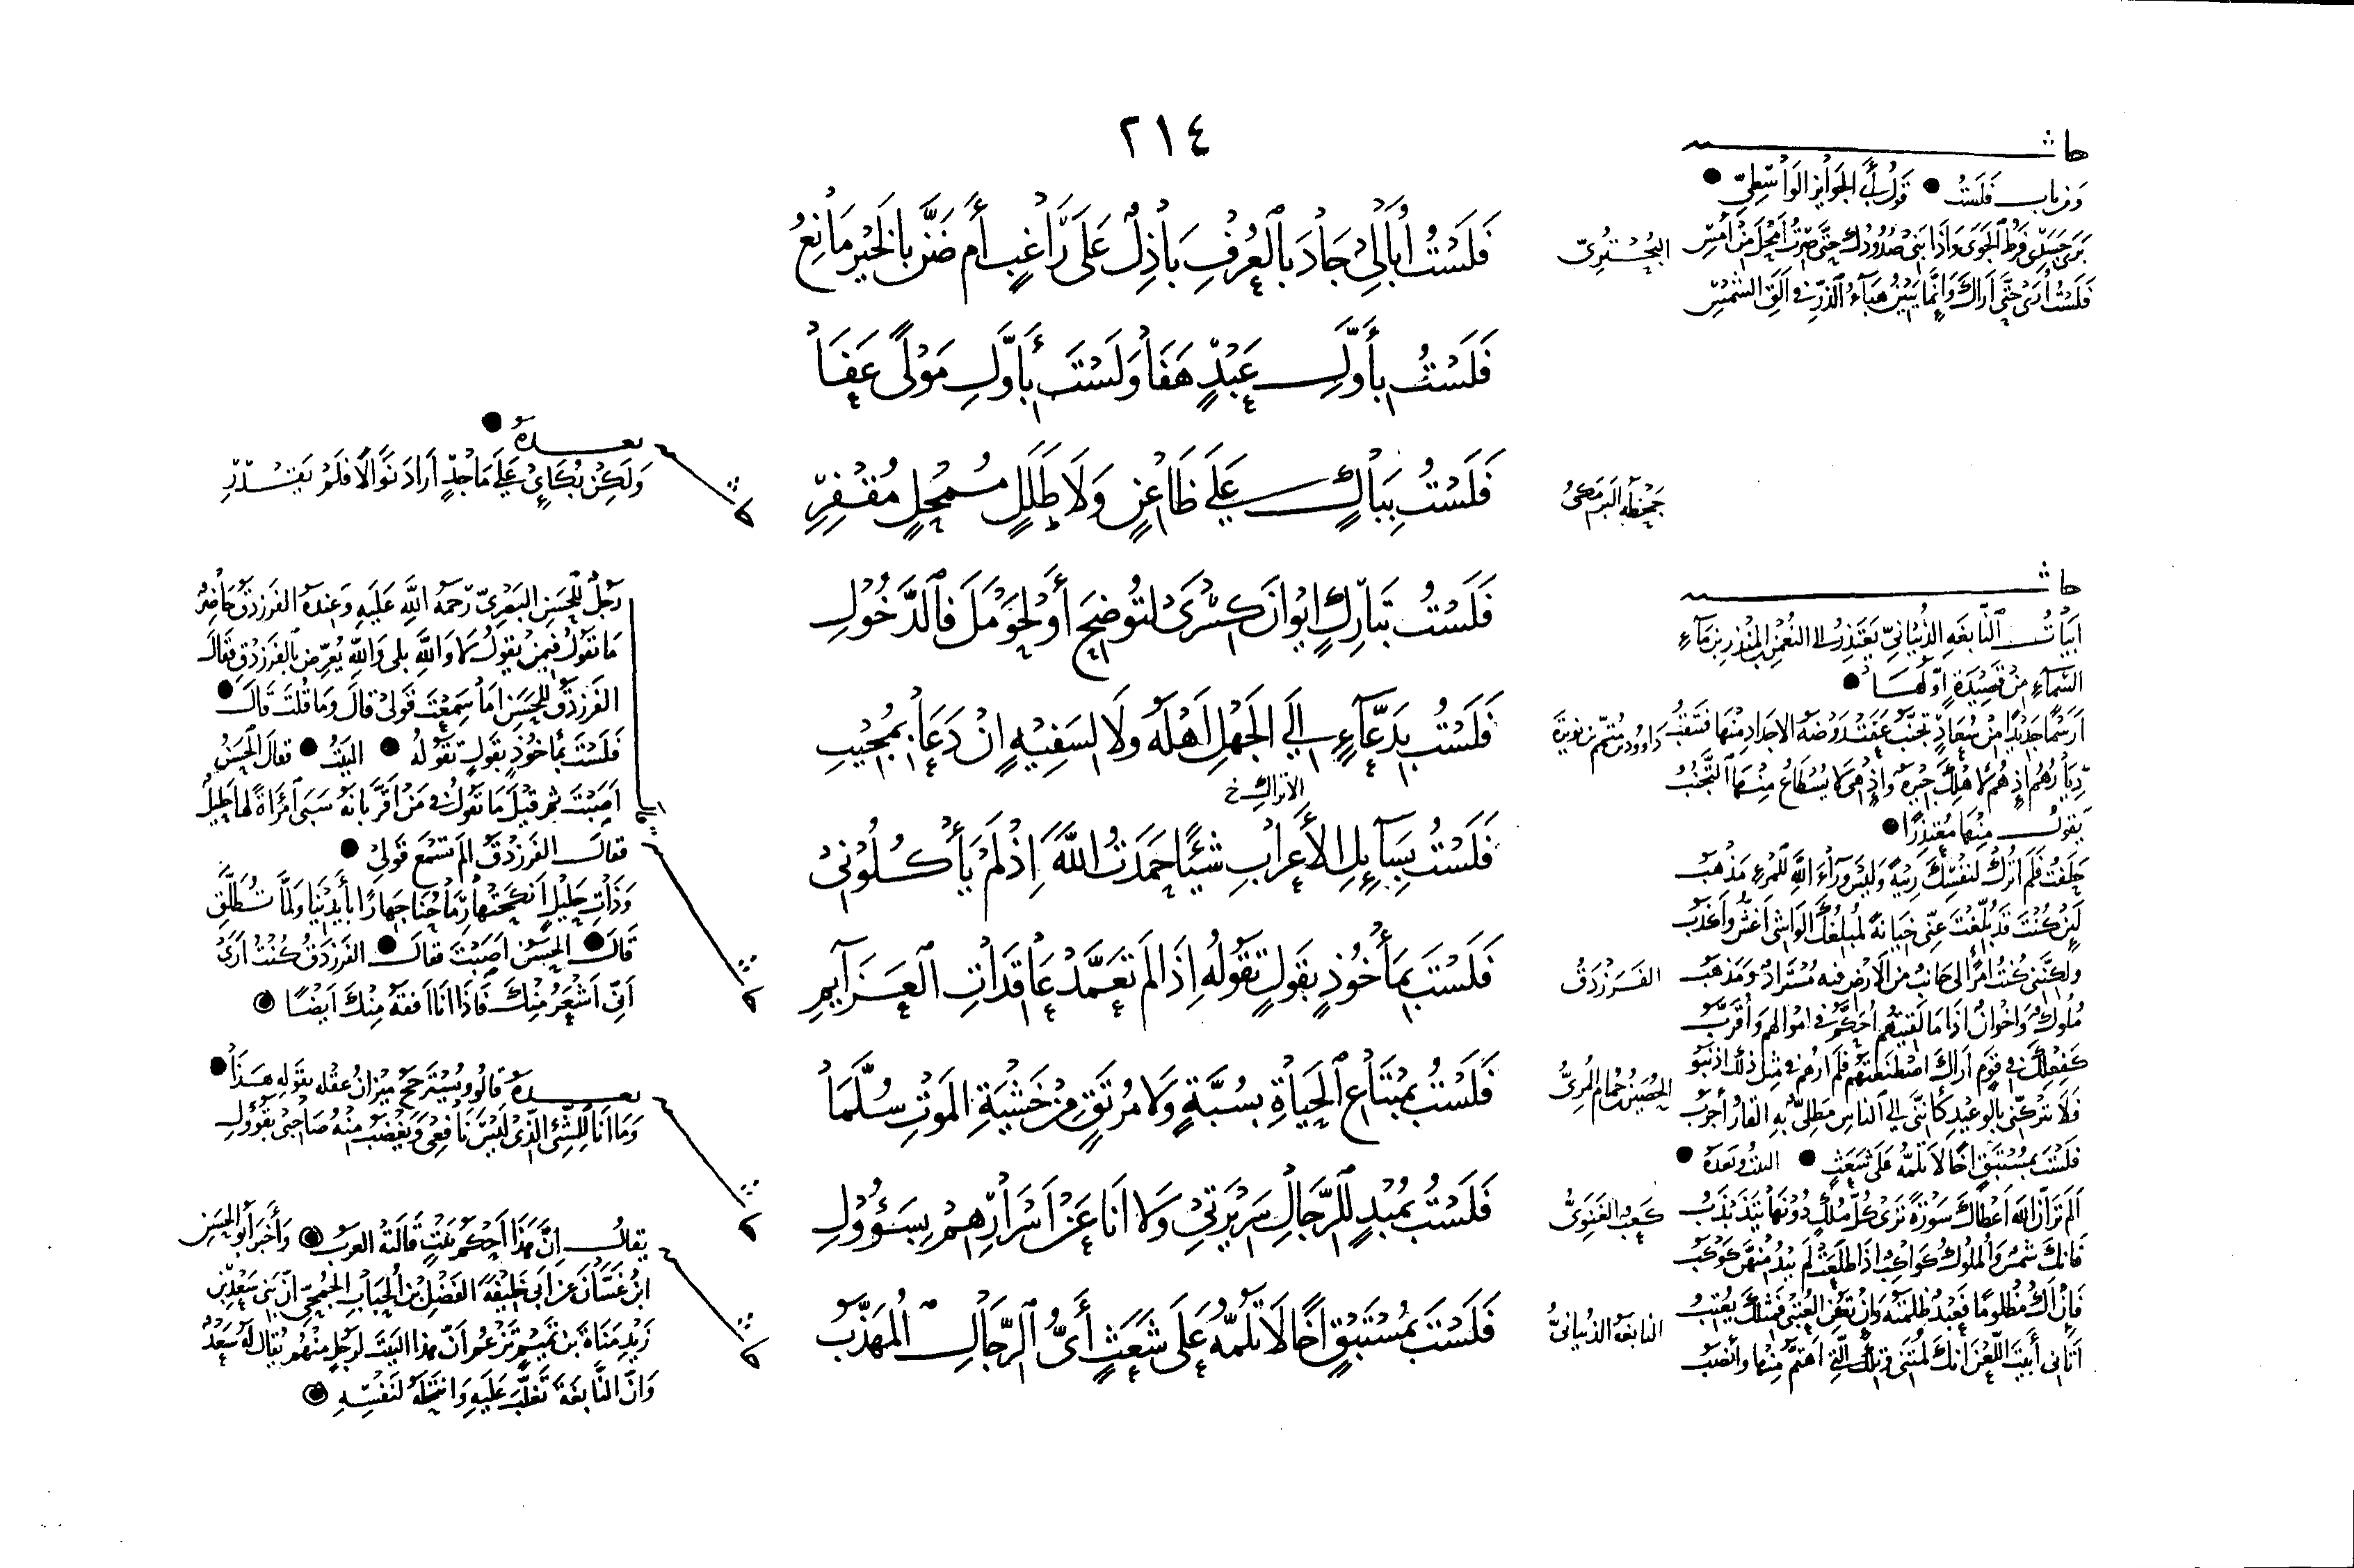 ٢١٤
فَلَسْتُ أُبَالِي جَادَ بِالْعُرْفِ بَاذِلٌ عَلَى رَاغِبٍ أَم ضَنَّ بِالْخَيْرِ مَانِعُ
البُحْتُرِيّ
فَلَسْتُ بِأَوَّلِ عَبْدٍ هَفَا وَلَسْتَ بِأَوَّلِ مَوْلًى عَفَا
فَلَسْتُ بِبَاكٍ عَلَى ظَاعِنٍ وَلَا طَلَلٍ مُمْحِلٍ مُقْفِرِ
جَحْظَة البَرمَكيُّ
فَلَسْتُ بِتَارِكٍ إِيْوَانَ كِسْرَى لِتُوضِحَ أَوْ لِحَوْمَلَ فَالدَّخُولِ
فَلَسْتُ بِدَعَّاءٍ إِلَى الْجَهْلِ أَهْلَهُ وَلَا لِسَفِيْهٍ إِنْ دَعَا بِمُجِيْبِ
دَاوُود بن مُتَمّم بن نويرَة
الاتراك خ
فَلَسْتُ بِسَآئِلِ الأَعْرَابِ شَيْئًا حَمَدْتُ اللَّهَ إِذْ لَمْ يَأْكُلُوْنِي
فَلَسْتَ بِمَأْخُوْذٍ بِقَولٍ تَقُولُهُ إِذَا لَمْ تَعَمَّدْ عَاقِدَاتِ الْعَزَآيِمِ
الفَرَزْدَقُ
فَلَسْتُ بِمُبْتَاعِ الْحَيَاةِ بِسُبَّةٍ وَلَا مُرْتَقٍ مِنْ خَشْيَةِ الْمَوْتِ سُلَّمَا
الحُصَينُ بن حُمام المُرِّيُّ
فَلَسْتُ بِمُبْدٍ لِلرِّجَالِ سَرِيْرَتِي وَلَا أَنَا عَنْ أَسْرَارِهِمْ بِسَؤُوْلِ
كَعْب الغَنَوِيُّ
فَلَسْتَ بِمُسْتَبْقٍ أَخًا لَا تَلُمُّهُ عَلَى شَعَثٍ أَيُّ الرِّجَالِ الْمُهَذَّبُ
النابغَة الذُبيانيُّ
هامش
وَمن باب فَلَسْتُ قَولُ أبي الجَوائِز الوَاسِطِيّ
بَرَى جَسَدِي فَرطُ الجَوَى وَأَذَابَنِي صُدُودُكَ حَتَّى صِرْتُ أَمْحَلَ مِنْ أَمْسِ
فَلَسْتُ أُرَى حَتَّى أَرَاكَ وَإِنَّمَا يَبِيْنُ هَبَاءُ الذَّرِّ فِي أَلَقِ الشَّمْسِ
هامش
أَبْيَاتُ النَّابِغَةِ الذُّبْيَانِيّ يَعْتَذِرُ إلى النُعْمَنِ بن المُنْذِرِ بنِ مَآءِ
السَّمَآءِ مِنْ قَصِيْدَةٍ أوّلهَا
أَرَسْمًا جَدِيْدًا مِنْ سُعَادَ تَجَنَّبُ عَفَتْ رَوْضَةُ الأَجْدَادِ مِنْهَا فَيَثْقُبُ
يَقُولُ مِنْهَا مُعْتَذِرًا
حَلَفْتُ فَلَم أَتْرُكْ لِنَفْسِكَ رِيْبَةً وَلَيْسَ وَرَآءَ اللَّهِ لِلْمَرْءِ مَذْهَبُ
لَئِنْ كُنْتَ قَدْ بُلِّغْتَ عَنِّي خِيَانَةً لَمُبْلِغُكَ الوَاشِي أَغَشُّ وَأَكْذَبُ
وَلَكِنَّنِي كُنْتُ امْرَأً لِي جَانِبٌ مِنَ الأَرْضِ فِيهِ مُسْتَرَادٌ وَمَذْهَبُ
مُلُوكٌ وَإِخْوَانٌ إِذَا مَا لَقِيْتُهُم أُحَكَّمُ فِي أَمْوَالِهِم وَأُقَرَّبُ
كَفِعْلِكَ فِي قَومٍ أَرَاكَ اصْطَنَعْتَهُم فَلَم أرهُم فِي مِثْلِ ذَلِكَ أَذْنَبُوا
فَلَا تَتْرُكَنِّي بِالوَعِيْدِ كَأَنَّنِي إِلَى النَّاسِ مَطْلِيٌّ بِهِ القَارُ أَجْرَبُ
فَلَسْتَ بِمُسْتَبْقٍ أَخًا لَا تَلُمُّهُ عَلَى شَعَثٍ البيت وَبعدَهُ
أَلَم تَرَ أَنَّ اللَّهَ أَعْطَاكَ سُورَةً تَرَى كُلَّ مَلْكٍ دُونَهَا يَتَذَبْذَبُ
فَإنَّكَ شَمْسٌ وَالمُلُوكُ كَوَاكِبٌ إِذَا طَلَعَتْ لَم يَبْدُ مِنْهُنَّ كَوْكَبُ
فَإِنْ أَكُ مَظْلُومًا فَعَبْدٌ ظَلَمْتَهُ وَإِنْ تَكُ ذَا عُتْبَى فَمِثْلُكَ يُعْتِبُ
أَتَانِي أَبَيْتَ اللَّعْنَ أَنَّكَ لُمْتَنِي وَتِلْكَ الَّتِي أَهْتَمُّ مِنْهَا وَأَنْصَبُ
بعدهُ
وَلَكِنْ بُكَايَ عَلَى مَاجِدٍ أَرَادَ نَوَالًا فَلَمْ يَقْدِرِ
رَجُلٌ لِلْحَسَنِ البَصْرِيّ رَحمَهُ اللَّهُ عَلَيهِ وَعِندَهُ الفَرَزْدَقُ حَاضِرٌ
مَا تَقُولُ فِيمَنْ يَقُولُ لا وَاللَّهِ بَلَى وَاللَّهِ يُعَرِّضُ بِالفَرَزْدَقِ فَقَالَ
الفَرَزْدَقُ لِلحَسَنِ أَمَا سَمِعْتَ قَوْلِي قَالَ وَمَا قُلْتَ قَالَ
فَلَسْتَ بِمَأخُوْذٍ بِقَولٍ تَقُولُهُ البَيْتُ فَقَالَ الحَسَنُ
أَصَبْتَ ثم قِيْلَ مَا تَقُولُ فِي مَنْ أَقَرَّ بِأَنَّهُ سَبَى امْرَأَةً لَهَا حَلِيْلٌ
فَقَالَ الفَرَزْدَقُ أَلَم تَسْمَع قَوْلِي
وَذَاتِ حَلِيْلٍ أَنْكَحَتْهَا رِمَاحُنَا جِهَارًا بِأَيْدِيْنَا وَلَمَّا تُطَلَّقِ
قَالَ الحَسَنُ أَصَبْتَ فَقَالَ الفَرَزدَقُ كُنْتُ أَرَى
أَنِّي أَشْعَرُ مِنْكَ فَإِذَا أَنَا أَفْقَهُ مِنْكَ أَيْضًا
بعدهُ قَالُوا وَيُسْتَرجَحُ مِيْزَانُ عَقْلِهِ بِقَولِهِ هَذَا
وَمَا أَنَا لِلشَّيْءِ الَّذِي لَيْسَ نَافِعِي وَيَغْضَبُ مِنْهُ صَاحِبِي بِقَؤُولِ
يقالُ إِنَّ هَذَا أَحْكَمُ بَيْتٍ قَالَتْهُ العَرَبُ وَأَخْبَرَ أَبُو الحَسَن
ابنُ غَسَّانَ عَنْ أَبِي خَلِيْفَةَ الفَضْلِ بنِ الحُبَابِ الجُمَحِيِّ أَنَّ بَنِي سَعْدِ بْنِ
زَيْدِ مَنَاةَ بن تَمِيْمٍ تَزْعُمُ أَنَّ هَذَا البَيْتَ لِرَجُلٍ مِنْهُم يُقَالُ لَهُ سَعْدٌ
وَأَنَّ النَّابِغَةَ تَغَلَّبَ عَلَيْهِ وَانْتَحَلَهُ لِنَفْسِهِ